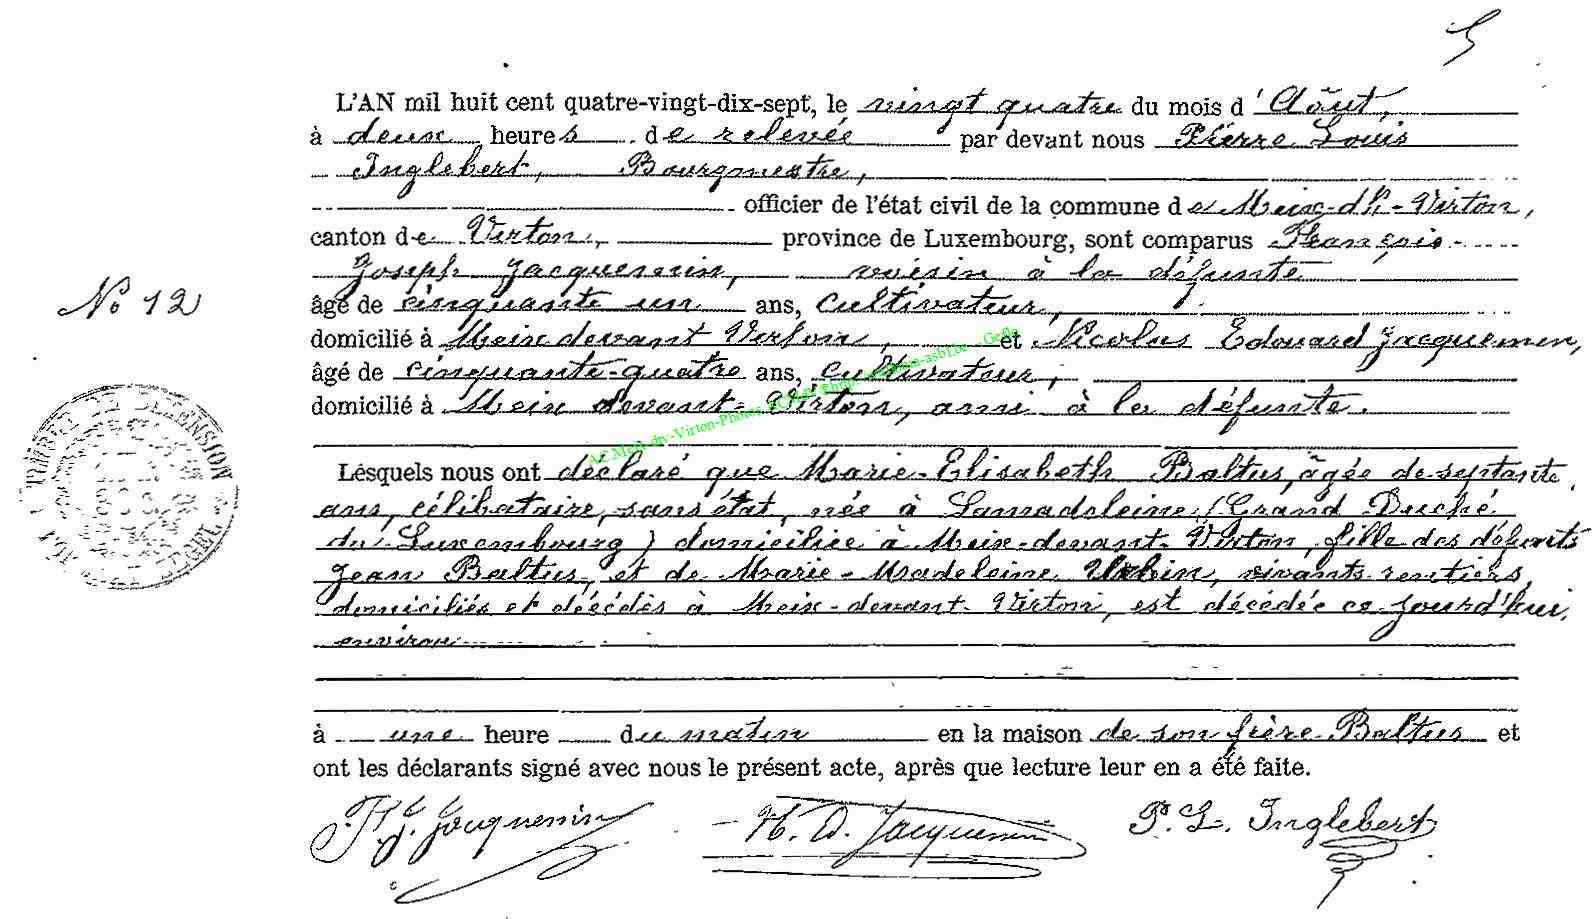 5
L'AN mil huit cent quatre-vingt-dix-sept, le vingt quatre du mois d'Août,
à deux heures de relevée par devant nous Pierre Louis
Inglebert, Bourgmestre,
officier de l'état civil de la commune de Meix-dt-Virton,
canton de Virton, province de Luxembourg, sont comparus François
Joseph Jacquemin, voisin à la défunte
âgé de cinquante un ans, cultivateur,
domicilié à Meix devant Virton, et Nicolas Edouard Jacquemin,
âgé de cinquante-quatre ans, cultivateur,
domicilié à Meix devant-Virton, ami à la défunte.
No 12
Lesquels nous ont déclaré que Marie-Elisabeth Baltus, âgée de septante
ans, célibataire, sans état, née à Lamadeleine (Grand Duché
du Luxembourg) domiciliée à Meix-devant-Virton, fille des défunts
Jean Baltus, et de Marie-Madeleine, vivants rentiers,
domiciliés et décédés à Meix-devant-Virton, est décédée ce jourd'hui
environ
à une heure du matin en la maison de son frère Baltus et
ont les déclarants signé avec nous le présent acte, après que lecture leur en a été faite.
F. J. Jacquemin N. Ed. Jacquemin P. L. Inglebert